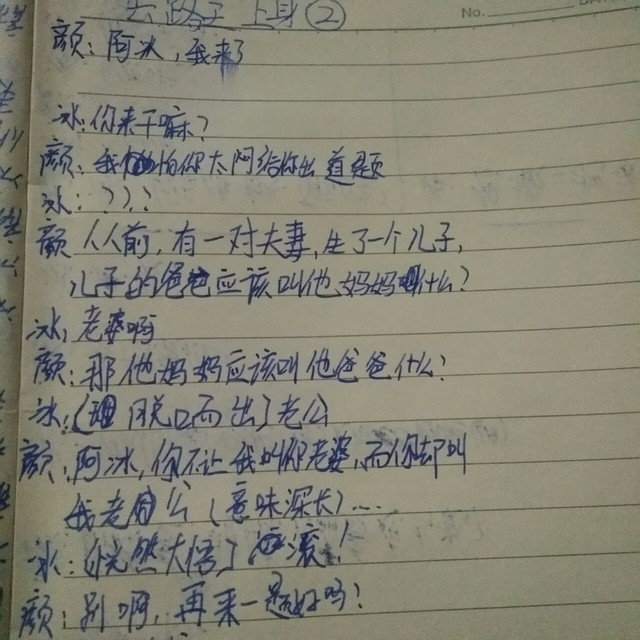 套路了 上身②
No.
颜：阿冰，我来了
冰：你来干嘛？
颜：我怕你太闲给你出道题
冰：？？？
颜 从前，有一对夫妻，生了一个儿子，
儿子的爸爸应该叫他妈妈什么？
冰：老婆啊
颜：那他妈妈应该叫他爸爸什么？
冰：（脱口而出）老公
颜：阿冰，你不让我叫你老婆，而你却叫
我老公（意味深长）...
冰：（恍然大悟）滚！
颜：别啊，再来一题好吗？